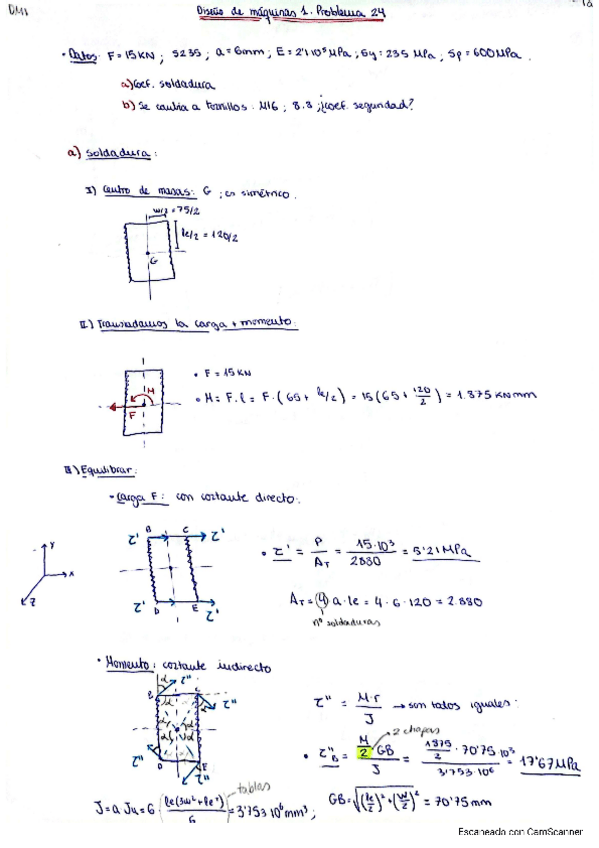 DM1
Diseño de máquinas 1. Problema 24
• Datos: F = 15 KN ; S235 ; a = 6mm ; E = 2'1·10⁵ MPa ; Sy = 235 MPa ; Sp = 600 MPa .
a) Coef. soldadura
b) Se cambia a tornillos : M16 ; 8.8 ; ¿coef. seguridad?
a) Soldadura :
I) Centro de masas: G ; es simétrico .
w/2 = 75/2
le/2 = 120/2
G
II) Trasladamos la carga + momento:
• F = 15 KN
• M = F·l = F·(65 + le/2) = 15(65 + 120/2) = 1.875 KN mm
M
F
III) Equilibrar:
• Carga F : con cortante directo:
B C
τ' τ'
• τ' = P/A_T = 15·10³/2880 = 5'21 MPa
y
x
z
τ' D E τ'
A_T = 4 a·le = 4·6·120 = 2.880
nº soldaduras
• Momento : cortante indirecto
τ'' = M·r/J → son todos iguales:
2 chapas
• τ''_B = M/2 · GB / J = 1875/2 · 70'75 10³ / 3'753·10⁶ = 17'67 MPa
B α τ'' C τ''
D τ'' E τ''
tablas
J = a Ju = 6 · (le(3w²+le²)/6) = 3'753 10⁶ mm³ ; GB = √((le/2)² + (w/2)²) = 70'75 mm
Escaneado con CamScanner